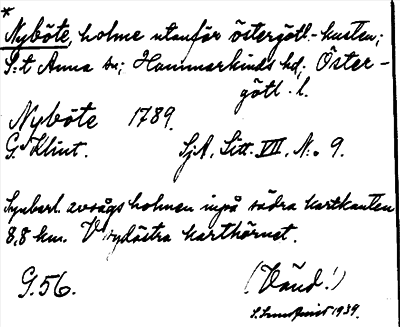 *
Nyböte, holme utanför östergötl.-kusten;
S:t Anna sn; Hammarkinds hd; Öster-
götl. l.
Nyböte 1789.
G. Klint. SjA, Litt. VII, N:o 9.
Synbarl. avsågs holmen inpå södra kartkanten
8,8 km. V sydöstra karthörnet.
G.56. (Vänd!)
1939.